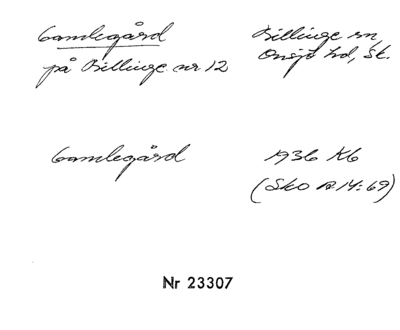 Gamlegård
Billinge sn,
på Billinge nr 12
Onsjö hd, Sk.
Gamlegård
1936 K6
(Sko A 14:69)
Nr 23307